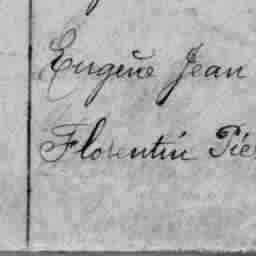 Eugène Jean
Florentin Pie